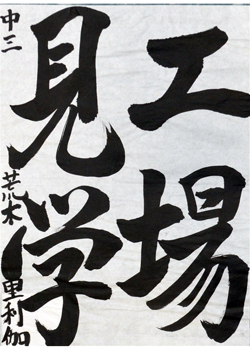 工場
見学
中三 荒木里利伽